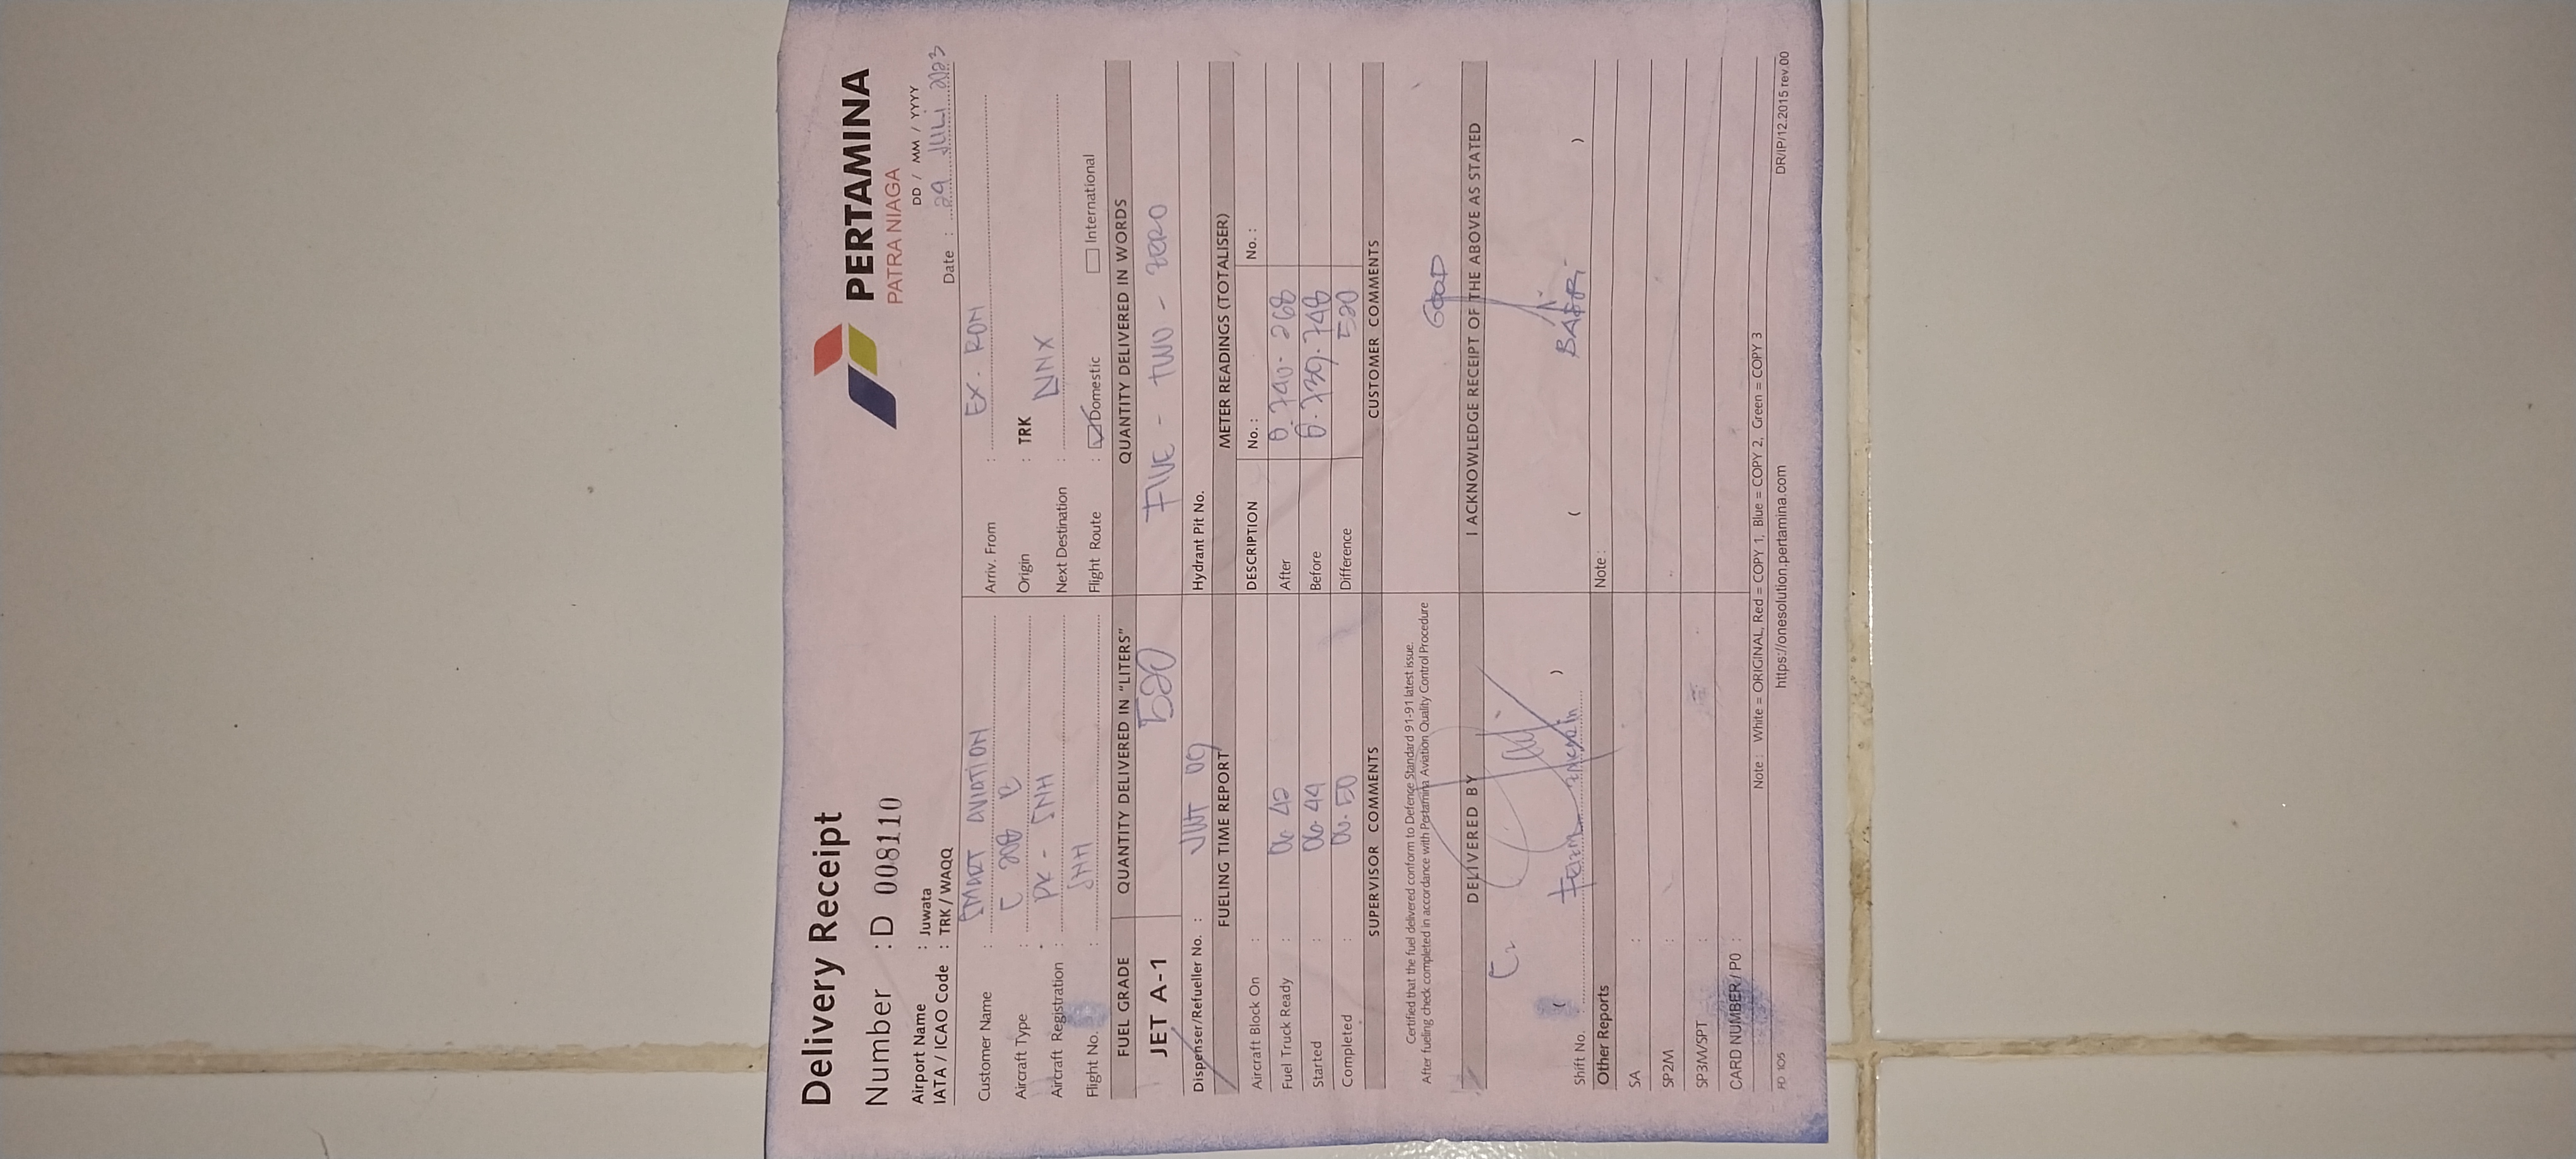 Delivery Receipt
PERTAMINA
PATRA NIAGA
Number : D 0081110
Airport Name : Juwata
DD / MM / YYYY
IATA / ICAO Code : TRK / WAQQ
Date : 29 JULI 2023
Customer Name : SMART AVIATION
Arriv. From : EX. ROM
Aircraft Type : C 208 B
Origin : TRK
Aircraft Registration : PK - SNH
Next Destination :
Flight No. : SNH
Flight Route : Domestic International
FUEL GRADE QUANTITY DELIVERED IN "LITERS" QUANTITY DELIVERED IN WORDS
JET A-1 520 FIVE - TWO - ZERO
Dispenser/Refueller No. : 09
Hydrant Pit No.
FUELING TIME REPORT METER READINGS (TOTALISER)
Aircraft Block On :
DESCRIPTION No. : No. :
Fuel Truck Ready : 06.42
After 268
Started : 06.44
Before 748
Completed : 06.50
Difference 520
SUPERVISOR COMMENTS CUSTOMER COMMENTS
Certified that the fuel delivered conform to Defence Standard 91-91 latest issue.
After fueling check completed in accordance with Pertamina Aviation Quality Control Procedure
GOOD
DELIVERED BY I ACKNOWLEDGE RECEIPT OF THE ABOVE AS STATED
Shift No. : ( ) ( )
Other Reports Note :
SA :
SP2M :
SP3M/SPT :
CARD NUMBER / PO :
Note : White = ORIGINAL, Red = COPY 1, Blue = COPY 2, Green = COPY 3
PD 105 https://onesolution.pertamina.com DR/IP/12.2015 rev.00